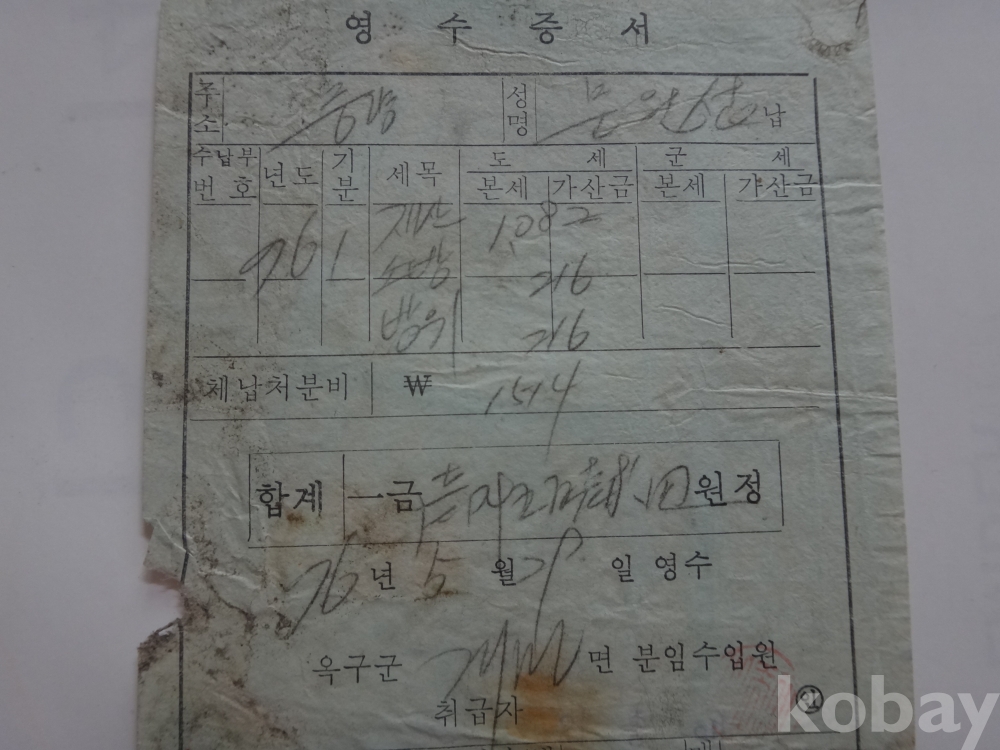 영수증서
주소 성명 문 납
수납부번호 년도 기분 세목 도세 군세
본세 가산금 본세 가산금
76 1 재산 1,082
소방 216
방위 216
체납처분비 ₩ 1514
합계 一금 원정
76년 5월 29일 영수
옥구군 면 분임수입원
취급자 인
kobay